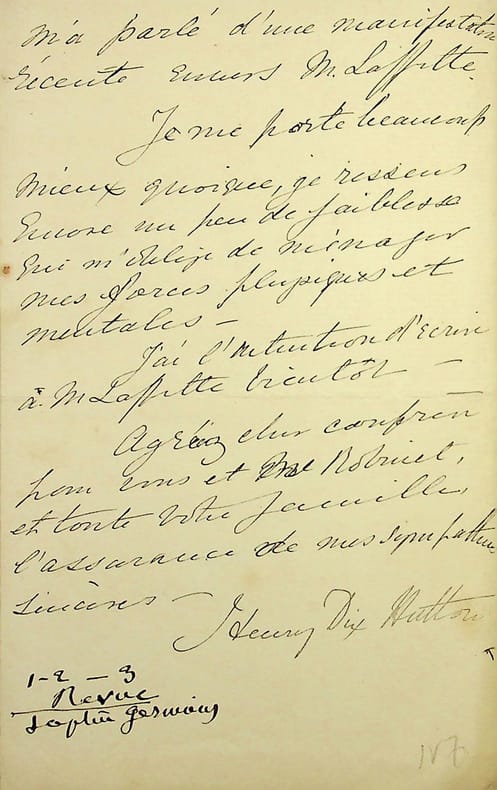 m'a parlé d'une manifestation
récente envers M. Laffitte.
Je me porte beaucoup
mieux quoique, je ressens
encore un peu de faiblesse
qui m'oblige de ménager
mes forces physiques et
mentales –
J'ai l'intention d'écrire
à M Laffitte bientôt –
Agréez cher confrère
pour vous et Me Robinet,
et toute votre famille,
l'assurance de mes sympathies
sincères –
Henry Dix Hutton
1-2-3
Revue
Sophie Germain